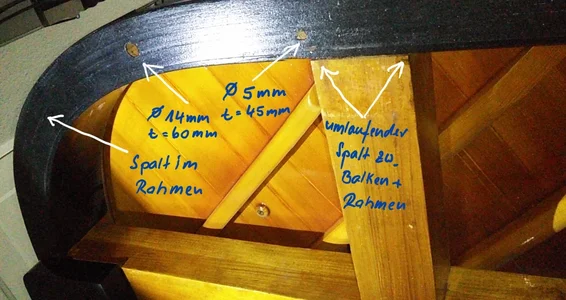 Ø 14mm
t=60mm
Ø 5mm
t=45mm
Spalt im
Rahmen
umlaufender
Spalt zw.
Balken+
Rahmen